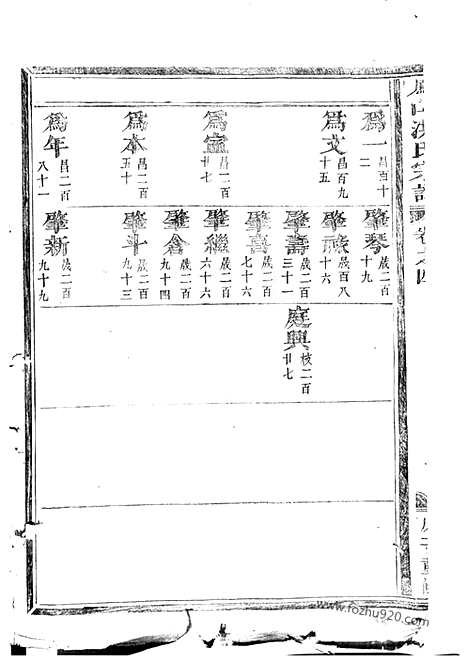 為一 昌百十二
為文 昌百九十五
為寍 昌二百廿七
為本 昌二百五十
為年 昌二百八十一
肇琴 歲二百十九
肇燕 歲百八十六
肇壽 歲二百三十一
肇喜 歲二百七十六
肇繼 歲二百六十六
肇倉 歲二百九十四
肇斗 歲二百九十三
肇新 歲二百九十九
庭興 枝二百廿七
氏宗譜 卷之四
www.fozhu920.com